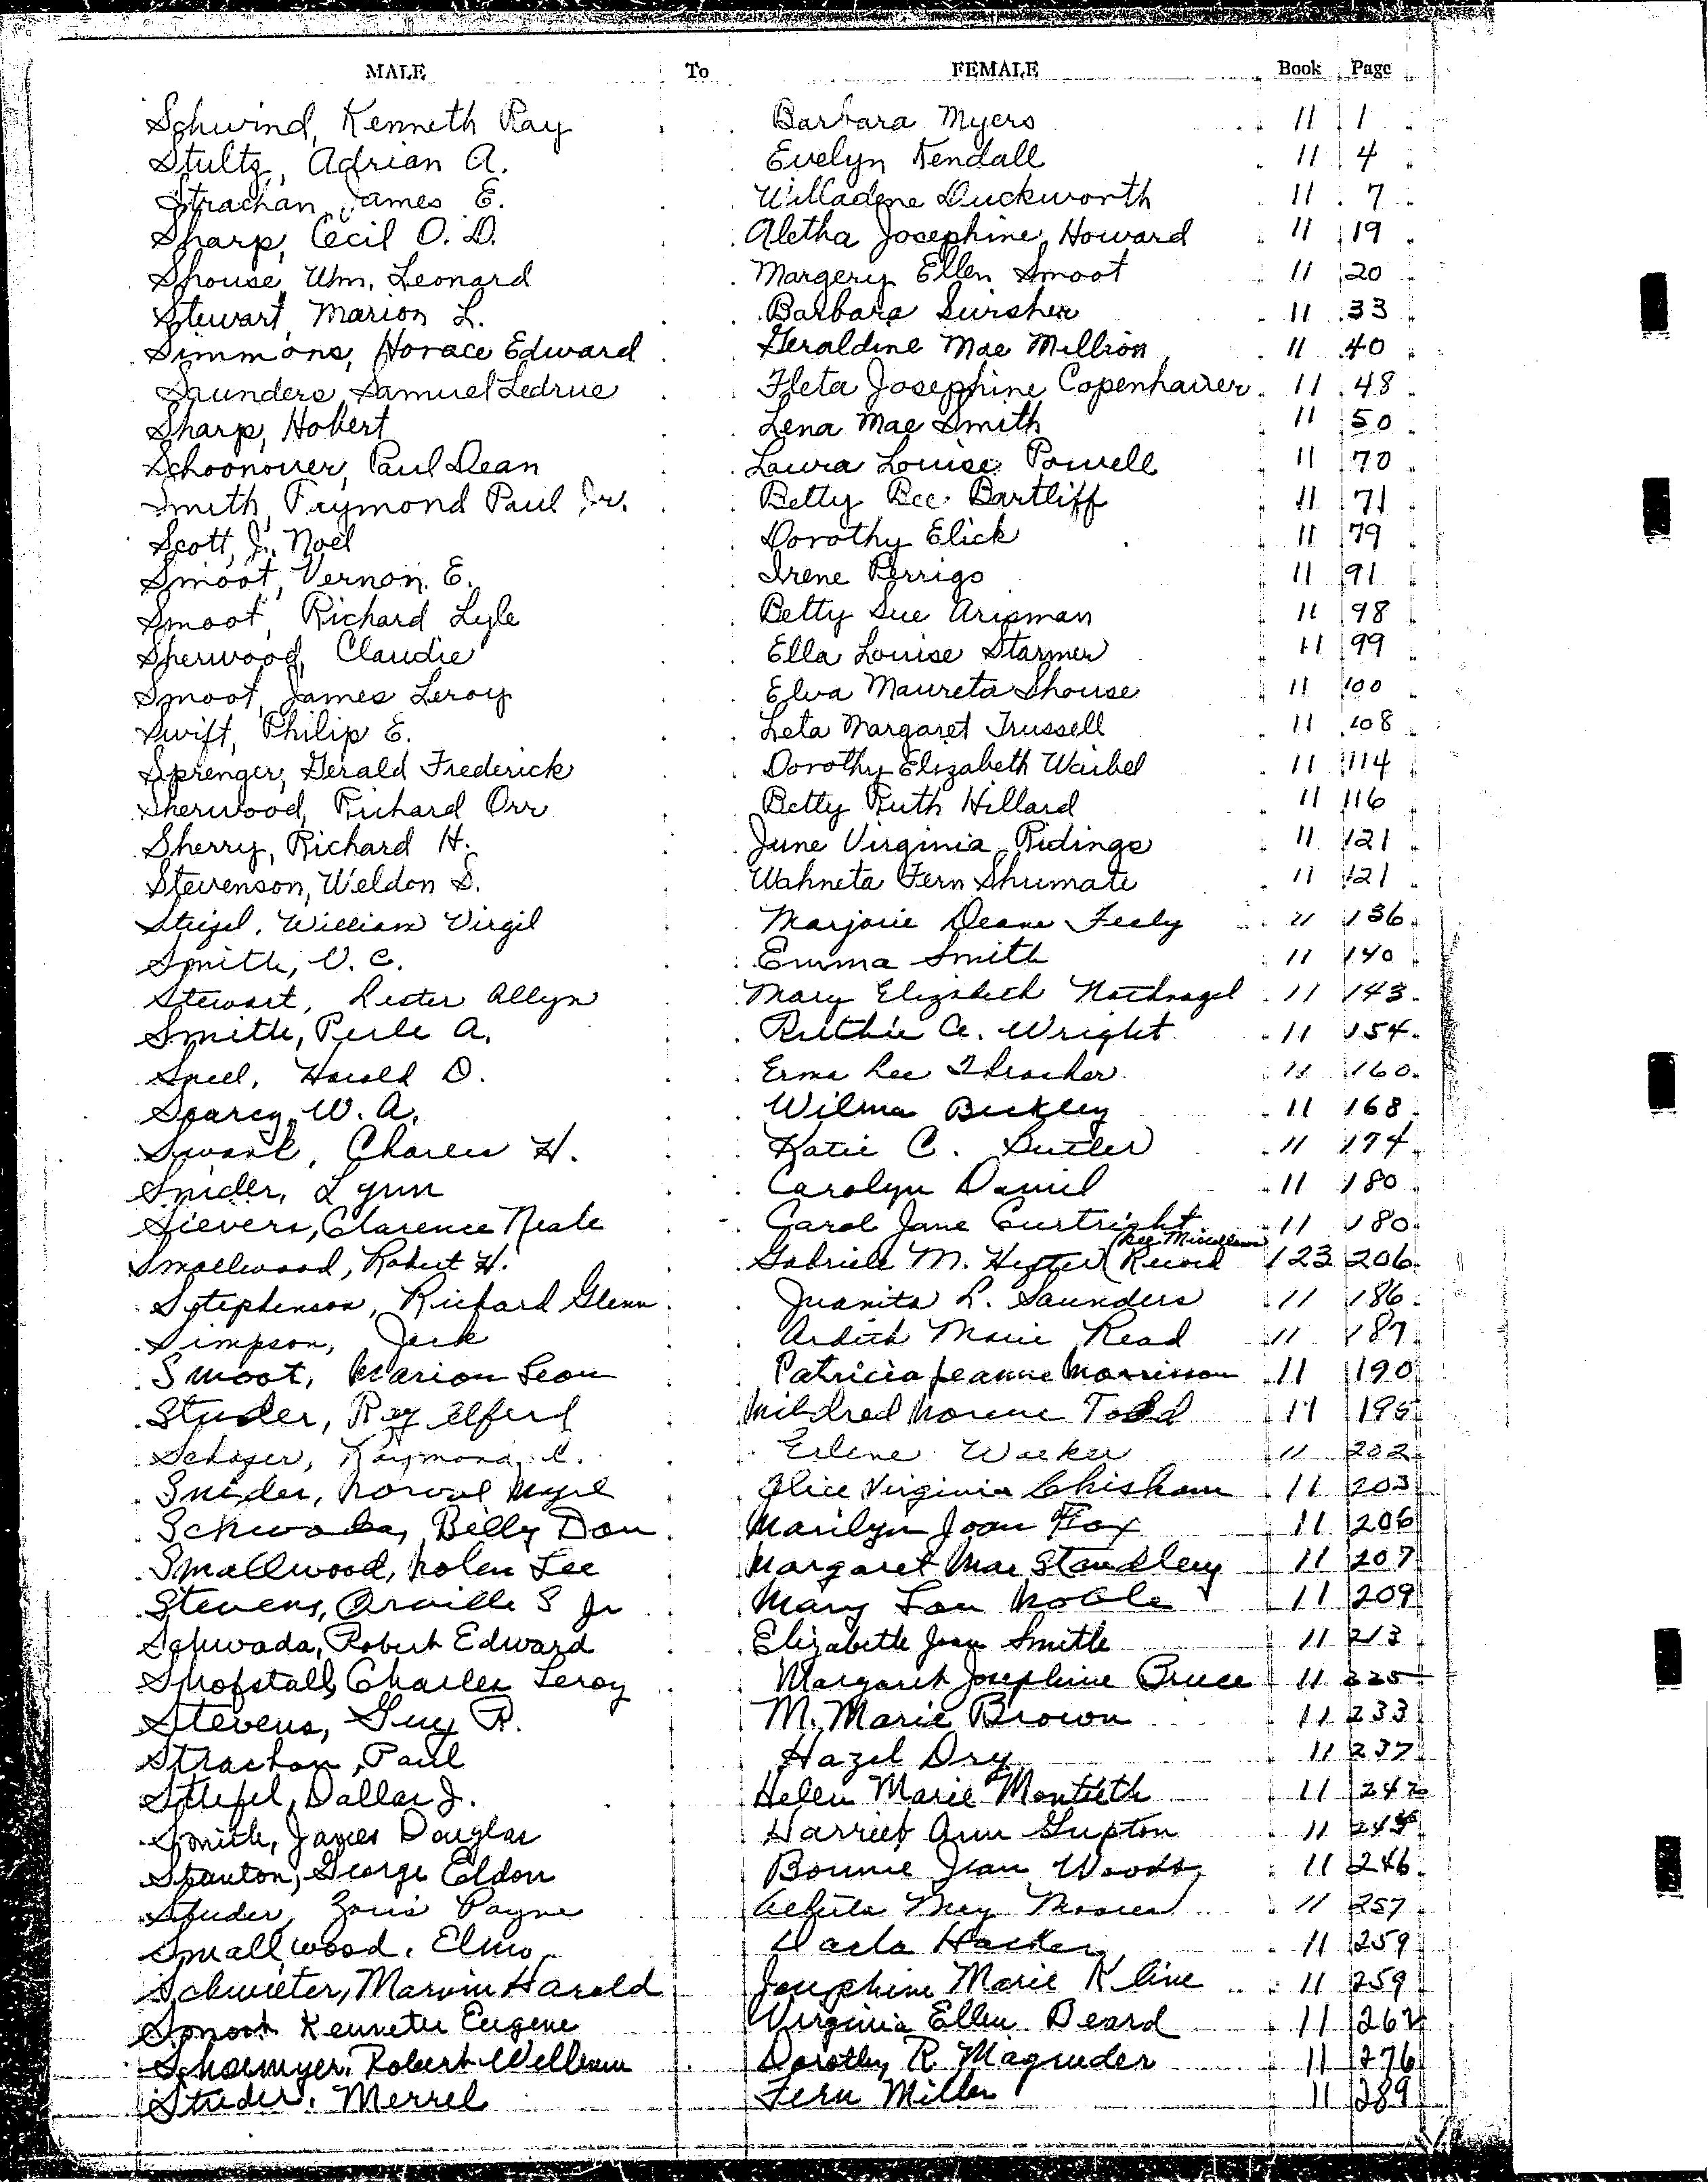 MALE To FEMALE Book Page
Schwind, Kenneth Ray Barbara Myers 11 1
Stultz, Adrian A. Evelyn Kendall 11 4
Strachan, James E. Willadene Duckworth 11 7
Sharp, Cecil O. D. Aletha Josephine Howard 11 19
Shouse, Wm. Leonard Margery Ellen Smoot 11 20
Stewart, Marion L. Barbara Swisher 11 33
Simmons, Horace Edward Geraldine Mae Million 11 40
Saunders, Samuel Ledrue Fleta Josephine Copenhaver 11 48
Sharp, Hobert Lena Mae Smith 11 50
Schoonover, Paul Dean Laura Louise Powell 11 70
Smith, Raymond Paul Jr. Betty Bee Bartliff 11 71
Scott, J. Noel Dorothy Elick 11 79
Smoot, Vernon E. Irene Perrigo 11 91
Smoot, Richard Lyle Betty Sue Arisman 11 98
Sherwood, Claudie Ella Louise Starmer 11 99
Smoot, James Leroy Elva Maureta Shouse 11 100
Swift, Philip E. Leta Margaret Trussell 11 108
Sprenger, Gerald Frederick Dorothy Elizabeth Waibel 11 114
Sherwood, Richard Orr Betty Ruth Hillard 11 116
Sherry, Richard H. June Virginia Ridings 11 121
Stevenson, Weldon S. Wahneta Fern Shumate 11 121
Stiegel, William Virgil Marjorie Deane Feely 11 136
Smith, V. C. Emma Smith 11 140
Stewart, Lester Allyn Mary Elizabeth Nothnagel 11 143
Smith, Perle A. Ruthie A. Wright 11 154
Snell, Harold D. Erma Lee Thrasher 11 160
Searcy, W. A. Wilma Beckley 11 168
Swank, Charles H. Katie C. Butler 11 174
Snider, Lynn Carolyn Daniel 11 180
Sievers, Clarence Neale Carol Jane Curtright 11 180
Smallwood, Robert H. Gabriele M. (See Record 123 206
Sytephenson, Richard Glenn Juanita L. Saunders 11 186
Simpson, Jack Ardith Marie Read 11 187
Smoot, Marion Leon Patricia Jeanne Morrison 11 190
Studer, Roy Elferd Mildred Norene Todd 11 195
Raymond C. Erlene Walker 11 202
Snider, Norval Myrl Alice Virginia Chisham 11 203
Schwada, Billy Don Marilyn Joan Fox 11 206
Smallwood, Nolen Lee Margaret Mae Standley 11 207
Stevens, Orville S Jr Mary Lou Noble 11 209
Schwada, Robert Edward Elizabeth Jean Smith 11 213
Shofstall, Charles Leroy Margaret Josephine Bruce 11 225
Stevens, Guy R. M. Marie Brown 11 233
Strachan, Paul Hazel Dry 11 237
Stiefel, Dallas J. Helen Marie Montieth 11 242
Smith, James Douglas Harriet Ann Gupton 11
Stanton, George Eldon Bonnie Jean Woods 11 246
Studer, Payne Alberta May 11 257
Smallwood, Elmo Darla 11 259
Schwieter, Marvin Harold Josephine Marie Kline 11 259
Smoot Kenneth Eugene Virginia Ellen Beard 11 262
Robert William Dorothy R. Magruder 11 276
Studer, Merrel Fern Miller 11 289